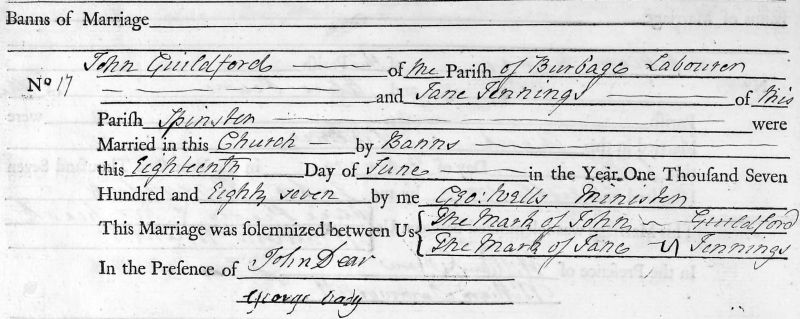 Banns of Marriage
John Guildford of the Parish of Burbage Labourer
No 17
and Jane Jennings of this
Parish Spinster were
Married in this Church by Banns
this Eighteenth Day of June in the Year One Thousand Seven
Hundred and Eighty seven by me Geo: Wells Minister
This Marriage was solemnized between Us { The Mark of John ~ Guildford
{ The Mark of Jane Jennings
In the Presence of John Dear
George